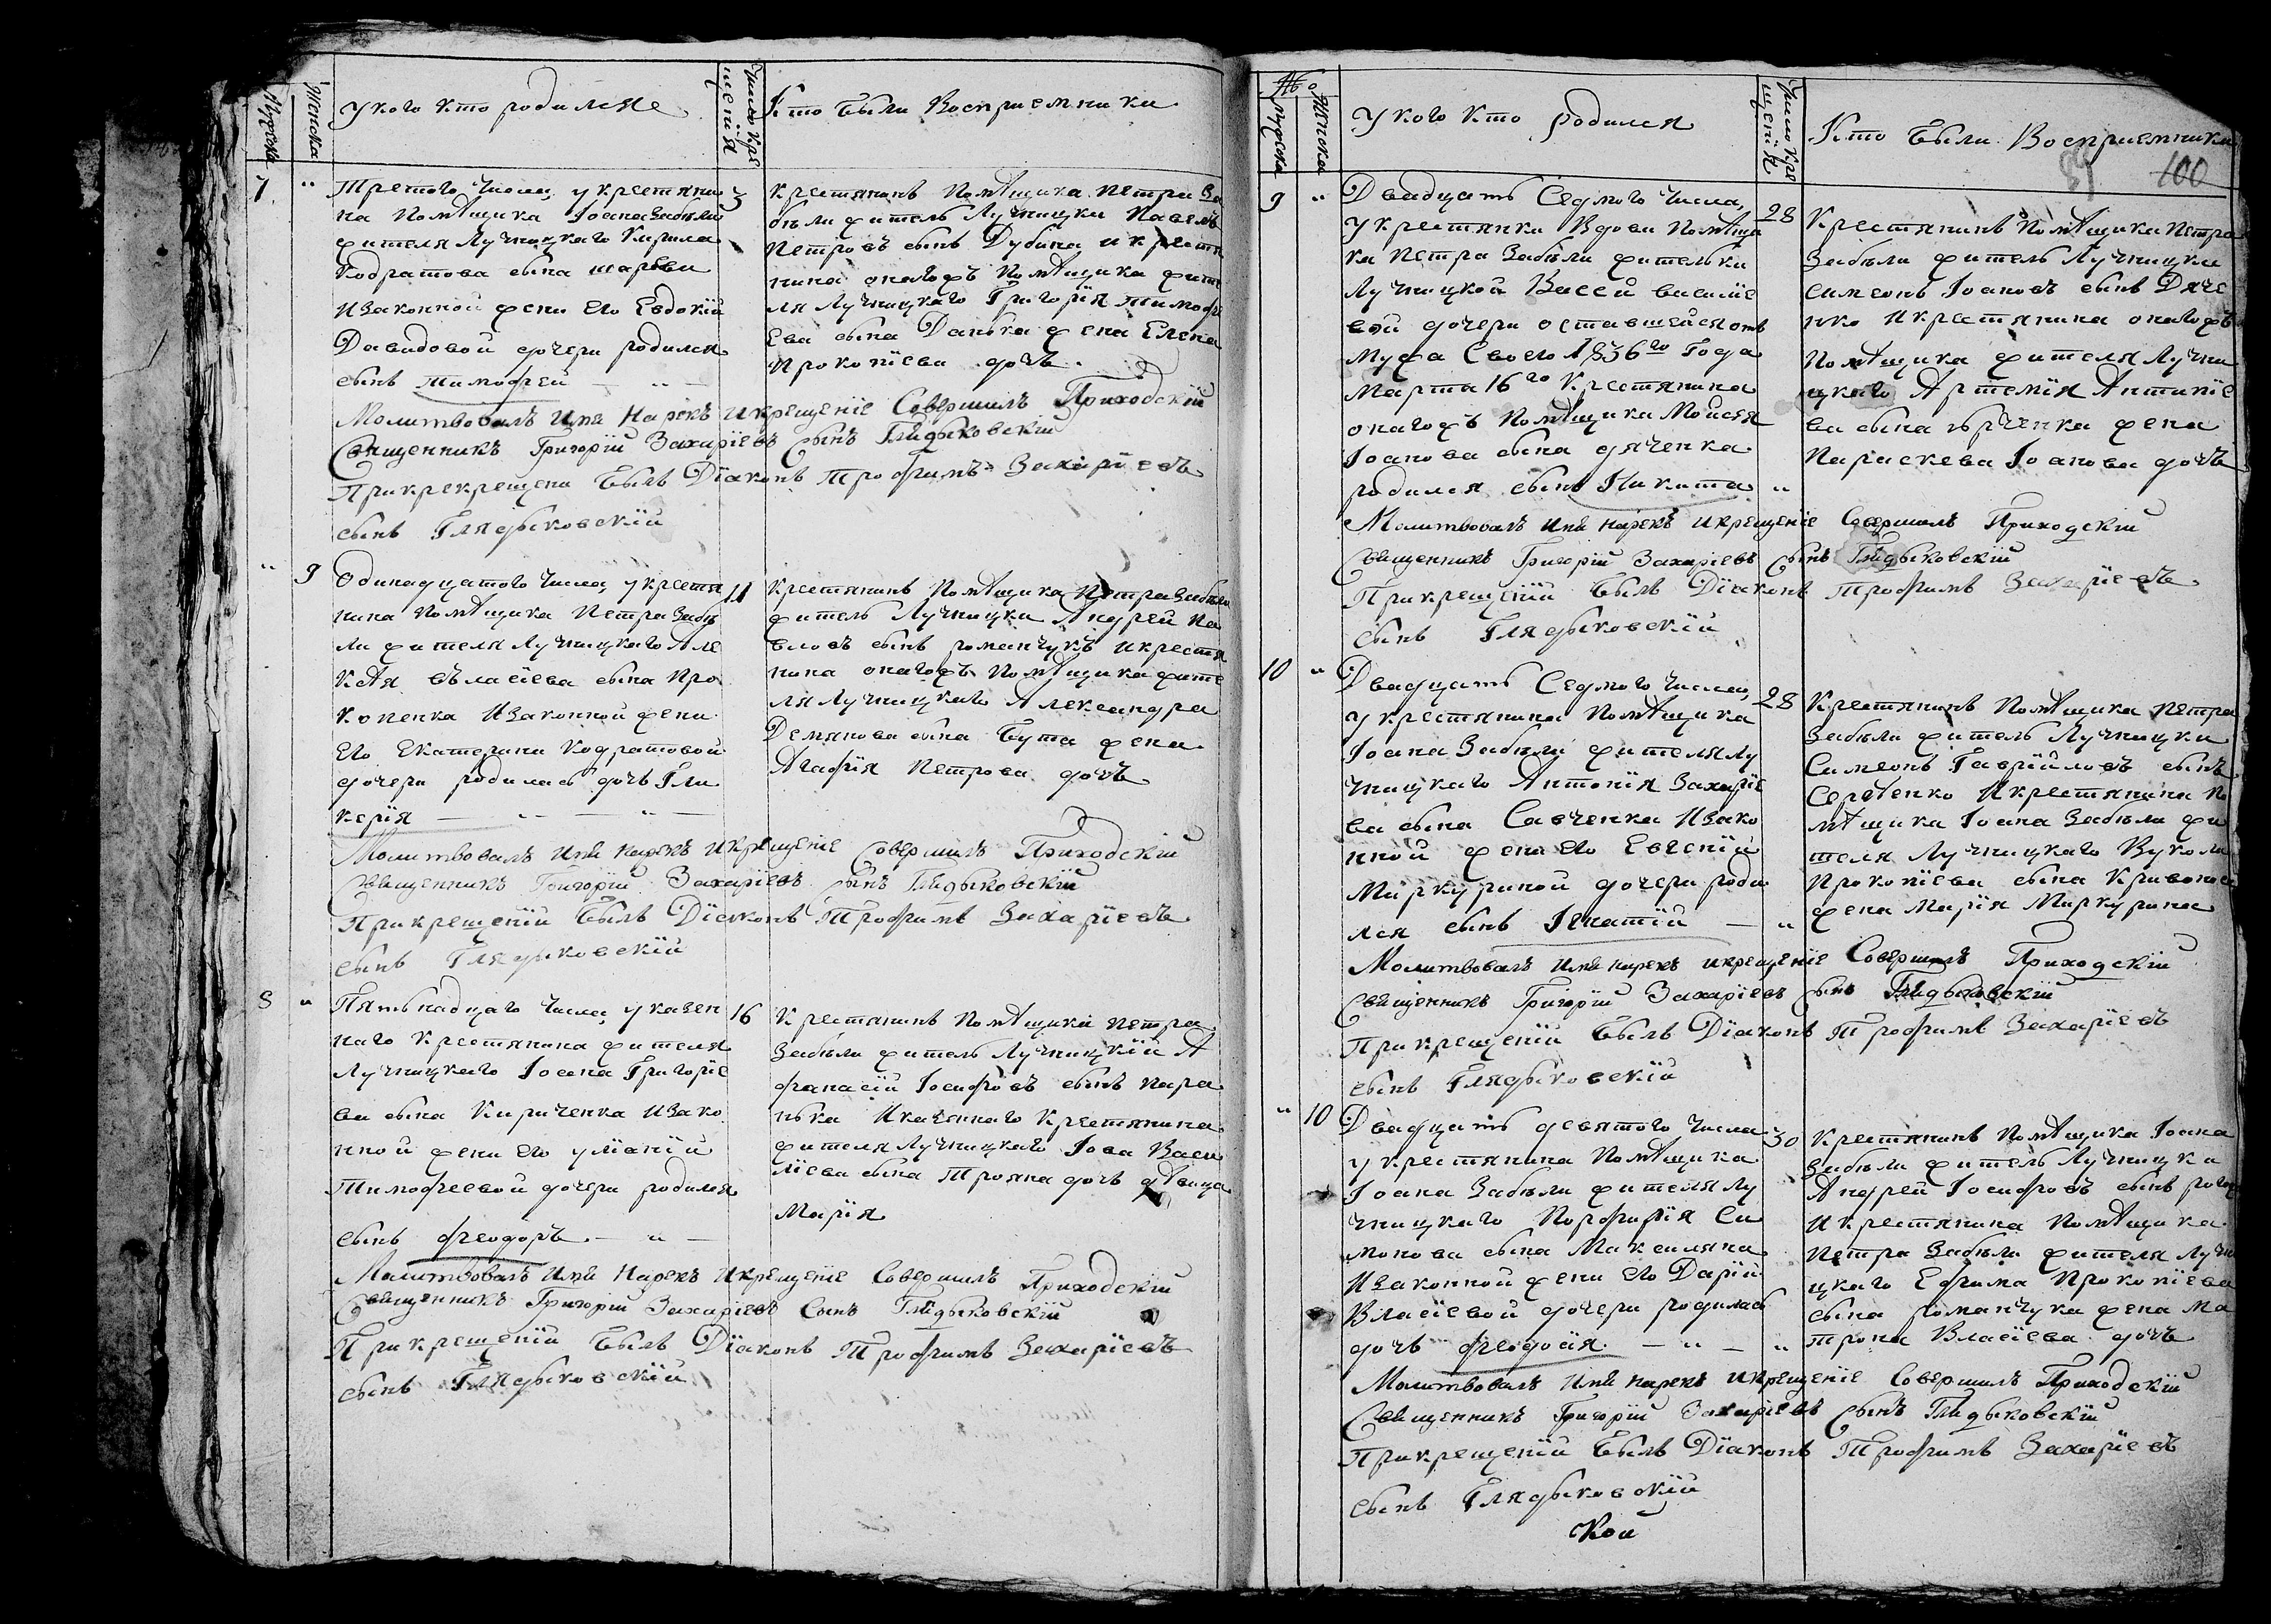 Мужеска
Женска
У кого кто родился
Число кре
щенія
Кто были Восприемники
7
"
Третого числа, у крестяни
на помѣщика Іоана Забѣли
жителя Лучницкаго Кирила
Кодратова сына
И законной жени его Евдокіи
Давидовой дочери родился
сынъ Тимофей — " —
3
Крестянинъ помѣщика Петра За
бѣли житель Лучницки Павелъ
Петровъ сынъ Дубина и крестя
нина онагожъ помѣщика жите
ля Лучницкаго Григорія Тимофе
ева сына Данька жена Елена
Прокопіева дочъ
Молитвовалъ имя нарекъ и крещеніе Совершилъ Приходскій
Священникъ Григорій Захаріевъ Сынъ Глядыковскій
При крекрещени былъ Діаконъ Трофимъ Захаріевъ
сынъ Глядыковскій
"
9
Одинадцатого числа, у крестя
нина помѣщика Петра Забѣ
ли жителя Лучницкаго Але
ксѣя Власіева сына Про
копенка И законной жени
его Екатерини Кодратовой
дочери родилась дочъ Гли
керія — " — " —
11
Крестянинъ помѣщика Петра Забѣли
житель Лучницки Андрей Па
вловъ сынъ Романчукъ и крестя
нина онагожъ помѣщика жите
ля Лучницкаго Александра
Демянова сына Бута жена
Агафія Петрова дочъ
Молитвовалъ имя нарекъ и крещеніе Совершилъ Приходскій
Священникъ Григорій Захаріевъ Сынъ Глядыковскій
При крещеніи былъ Діаконъ Трофимъ Захаріевъ
сынъ Глядыковскій
8
"
Пятьнадцаго числа, у казен
наго крестянина жителя
Лучницкаго Іосифа Григоріе
ва сына Кириченка И зако
нной жени его Уліаніи
Тимофеевой дочери родился
сынъ Феодоръ — " —
16
Крестянинъ помѣщика Петра
Забѣли житель Лучницкій А
фанасій Іосифовъ сынъ Пара
нька И казеннаго крестянина
жителя Лучницкаго Іова Васи
ліева сына Трояна дочъ дѣвица
Марія
Молитвовалъ имя нарекъ и крещеніе Совершилъ Приходскій
Священникъ Григорій Захаріевъ Сынъ Глядыковскій
При крещеніи былъ Діаконъ Трофимъ Захаріевъ
сынъ Глядыковскій
№
Мужеска
Женска
У кого кто родился
Число кре
щенія
Кто были Восприемники
100
9
"
Двадцать Седмого числа,
у крестянки Вдови помѣщи
ка Петра Забѣли жительки
Лучницкой Васси Василіе
вой дочери оставшейся отъ
мужа Своего 1836го Года
Марта 16го крестянина
онагожъ помѣщика Мойсея
Іоанова сына Дяченка
родился сынъ Никита "
28
Крестянинъ помѣщика Петра
Забѣли житель Лучницки
Симеонъ Іоановъ сынъ Дяче
нко И крестянина онагожъ
помѣщика жителя Лучни
цкаго Артемія Антипіе
ва сына жена
Параскева Іоанова дочъ
Молитвовалъ имя нарекъ и крещеніе Совершилъ Приходскій
Священникъ Григорій Захаріевъ Сынъ Глядыковскій
При крещеніи былъ Діаконъ Трофимъ Захаріевъ
сынъ Глядыковскій
10
"
Двадцать Седмого числа,
у крестянина помѣщика
Іоана Забѣли жителя Лу
чницкаго Антонія Захаріе
ва сына Савченка И зако
нной жени его Евгеніи
Миркуриной дочери роди
лся сынъ Игнатій — "
28
Крестянинъ помѣщика Петра
Забѣли житель Лучницки
Симеонъ Гавріиловъ сынъ
Середенко И крестянина по
мѣщика Іоана Забѣли жи
теля Лучницкаго Вукола
Прокопіева сына Кривоноса
жена Марія Миркурина
Молитвовалъ имя нарекъ и крещеніе Совершилъ Приходскій
Священникъ Григорій Захаріевъ Сынъ Глядыковскій
При крещеніи былъ Діаконъ Трофимъ Захаріевъ
сынъ Глядыковскій
"
10
Двадцать девятого числа
у крестянина помѣщика
Іоана Забѣли жителя Лу
чницкаго Порфирія Си
монова сына Максиляна
И законной жени его Даріи
Власіевой дочери родилась
дочъ Феодосія — " — "
30
Крестянинъ помѣщика Іоана
Забѣли житель Лучницки
Андрей Іосифовъ сынъ
И крестянина помѣщика
Петра Забѣли жителя Лучни
цкаго Ефима Прокопіева
сына Романчука жена Ма
трона Власіева дочъ
Молитвовалъ имя нарекъ и крещеніе Совершилъ Приходскій
Священникъ Григорій Захаріевъ Сынъ Глядыковскій
При крещеніи былъ Діаконъ Трофимъ Захаріевъ
сынъ Глядыковскій
Кой